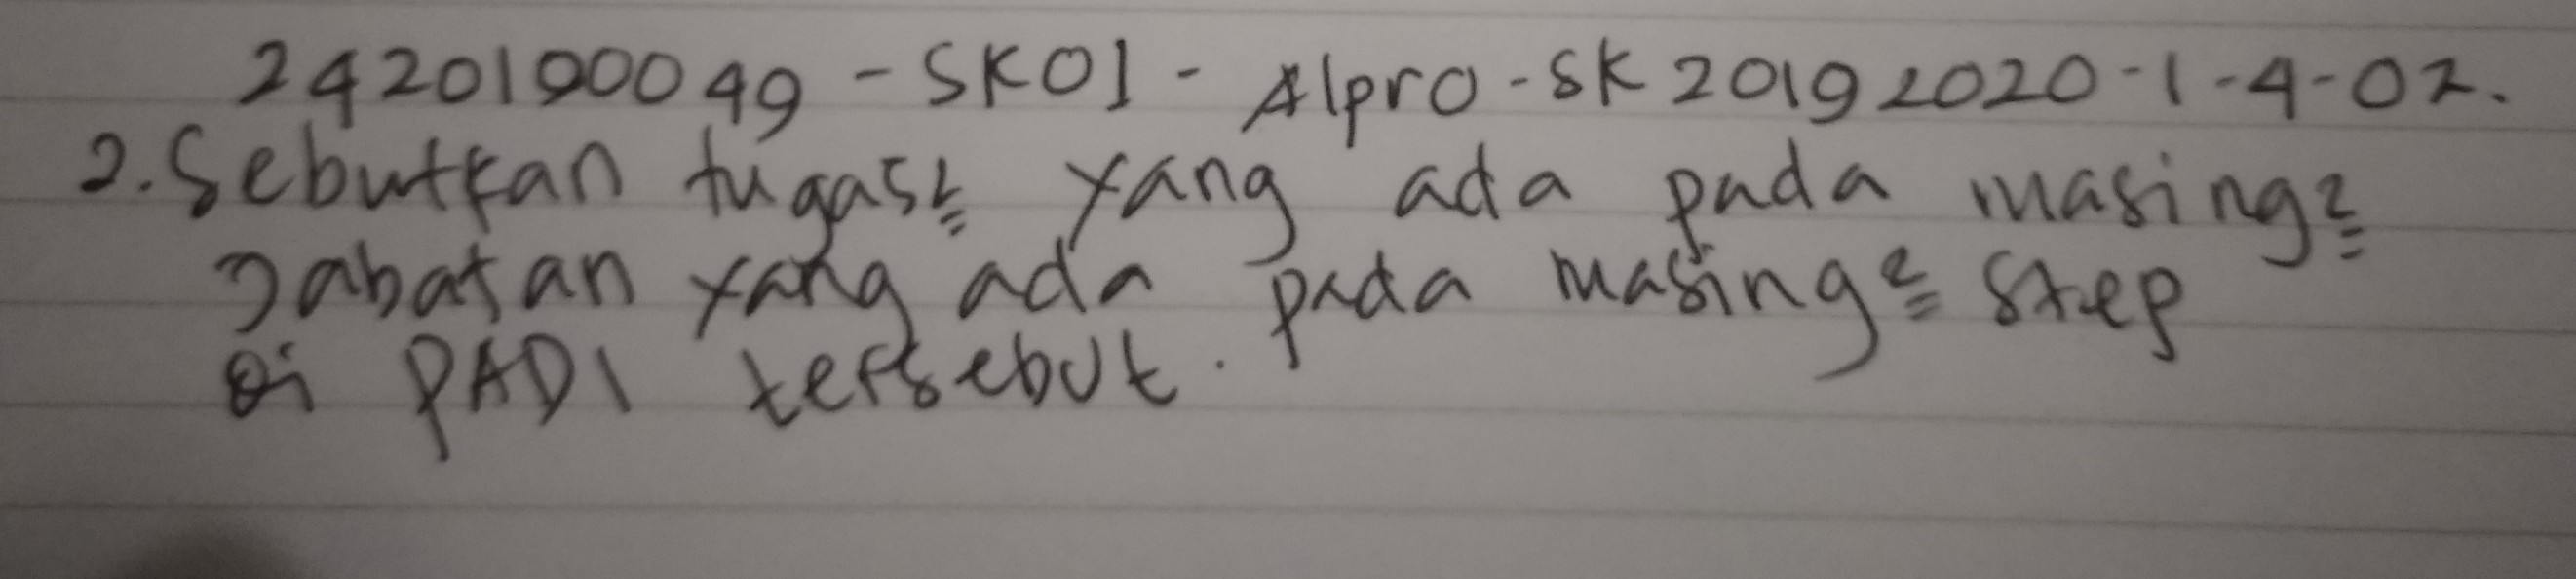 2420190049 - SK01 - Alpro - SK 20192020-1-4-02.
2. Sebutkan tugas2 yang ada pada masing2
Jabatan yang ada pada masing2 Step
di PADI tersebut.